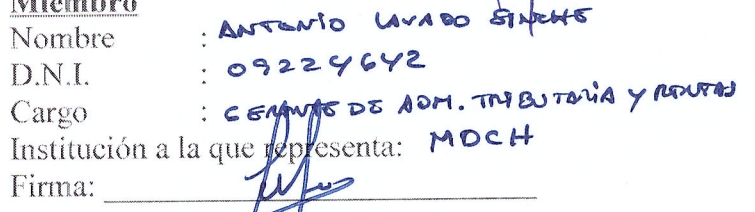 Miembro
Nombre : ANTONIO LAVADO
D.N.I. : 09224642
Cargo : GERENTE DE ADM. TRIBUTARIA Y RENTAS
Institución a la que representa: MDCH
Firma: